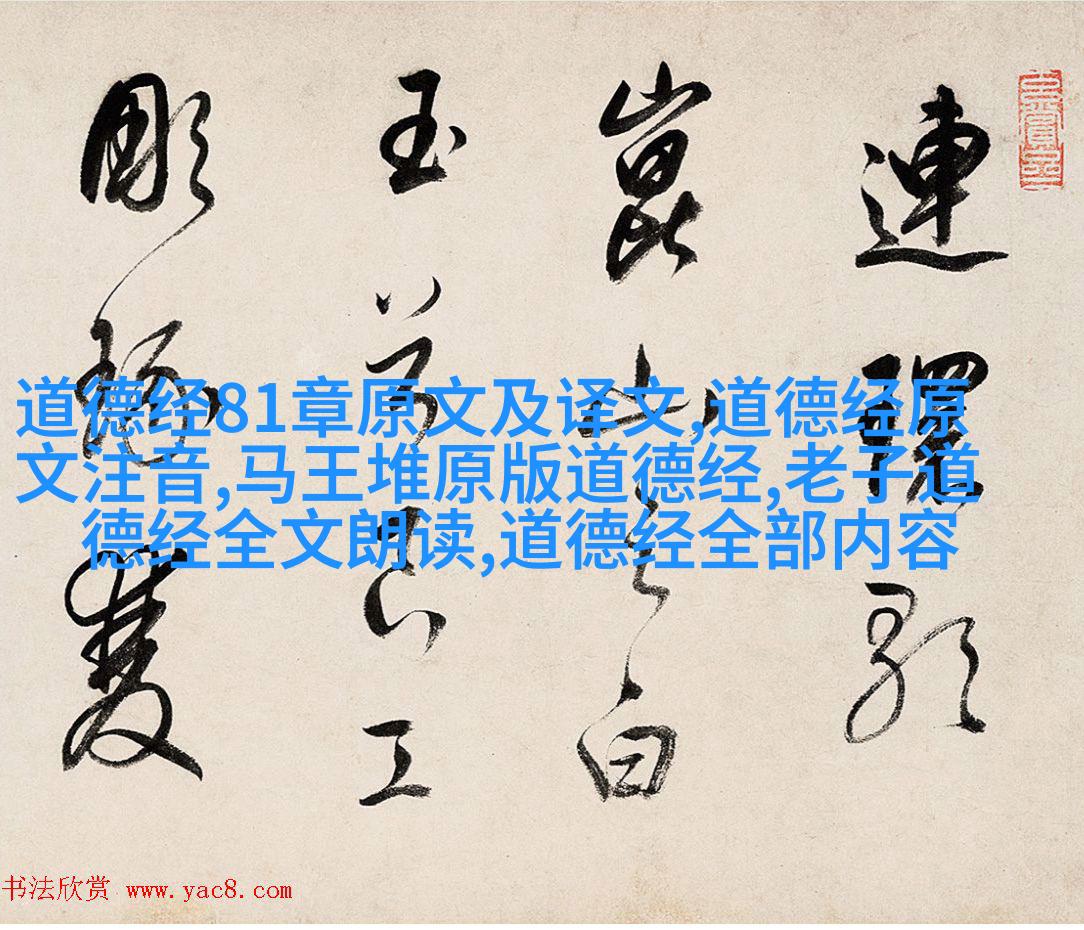 連環歌
崑山之白
玉兮良工
彫琢雙
道德经81章原文及译文,道德经原
文注音,马王堆原版道德经,老子道
德经全文朗读,道德经全部内容
书法欣赏 www.yac8.com